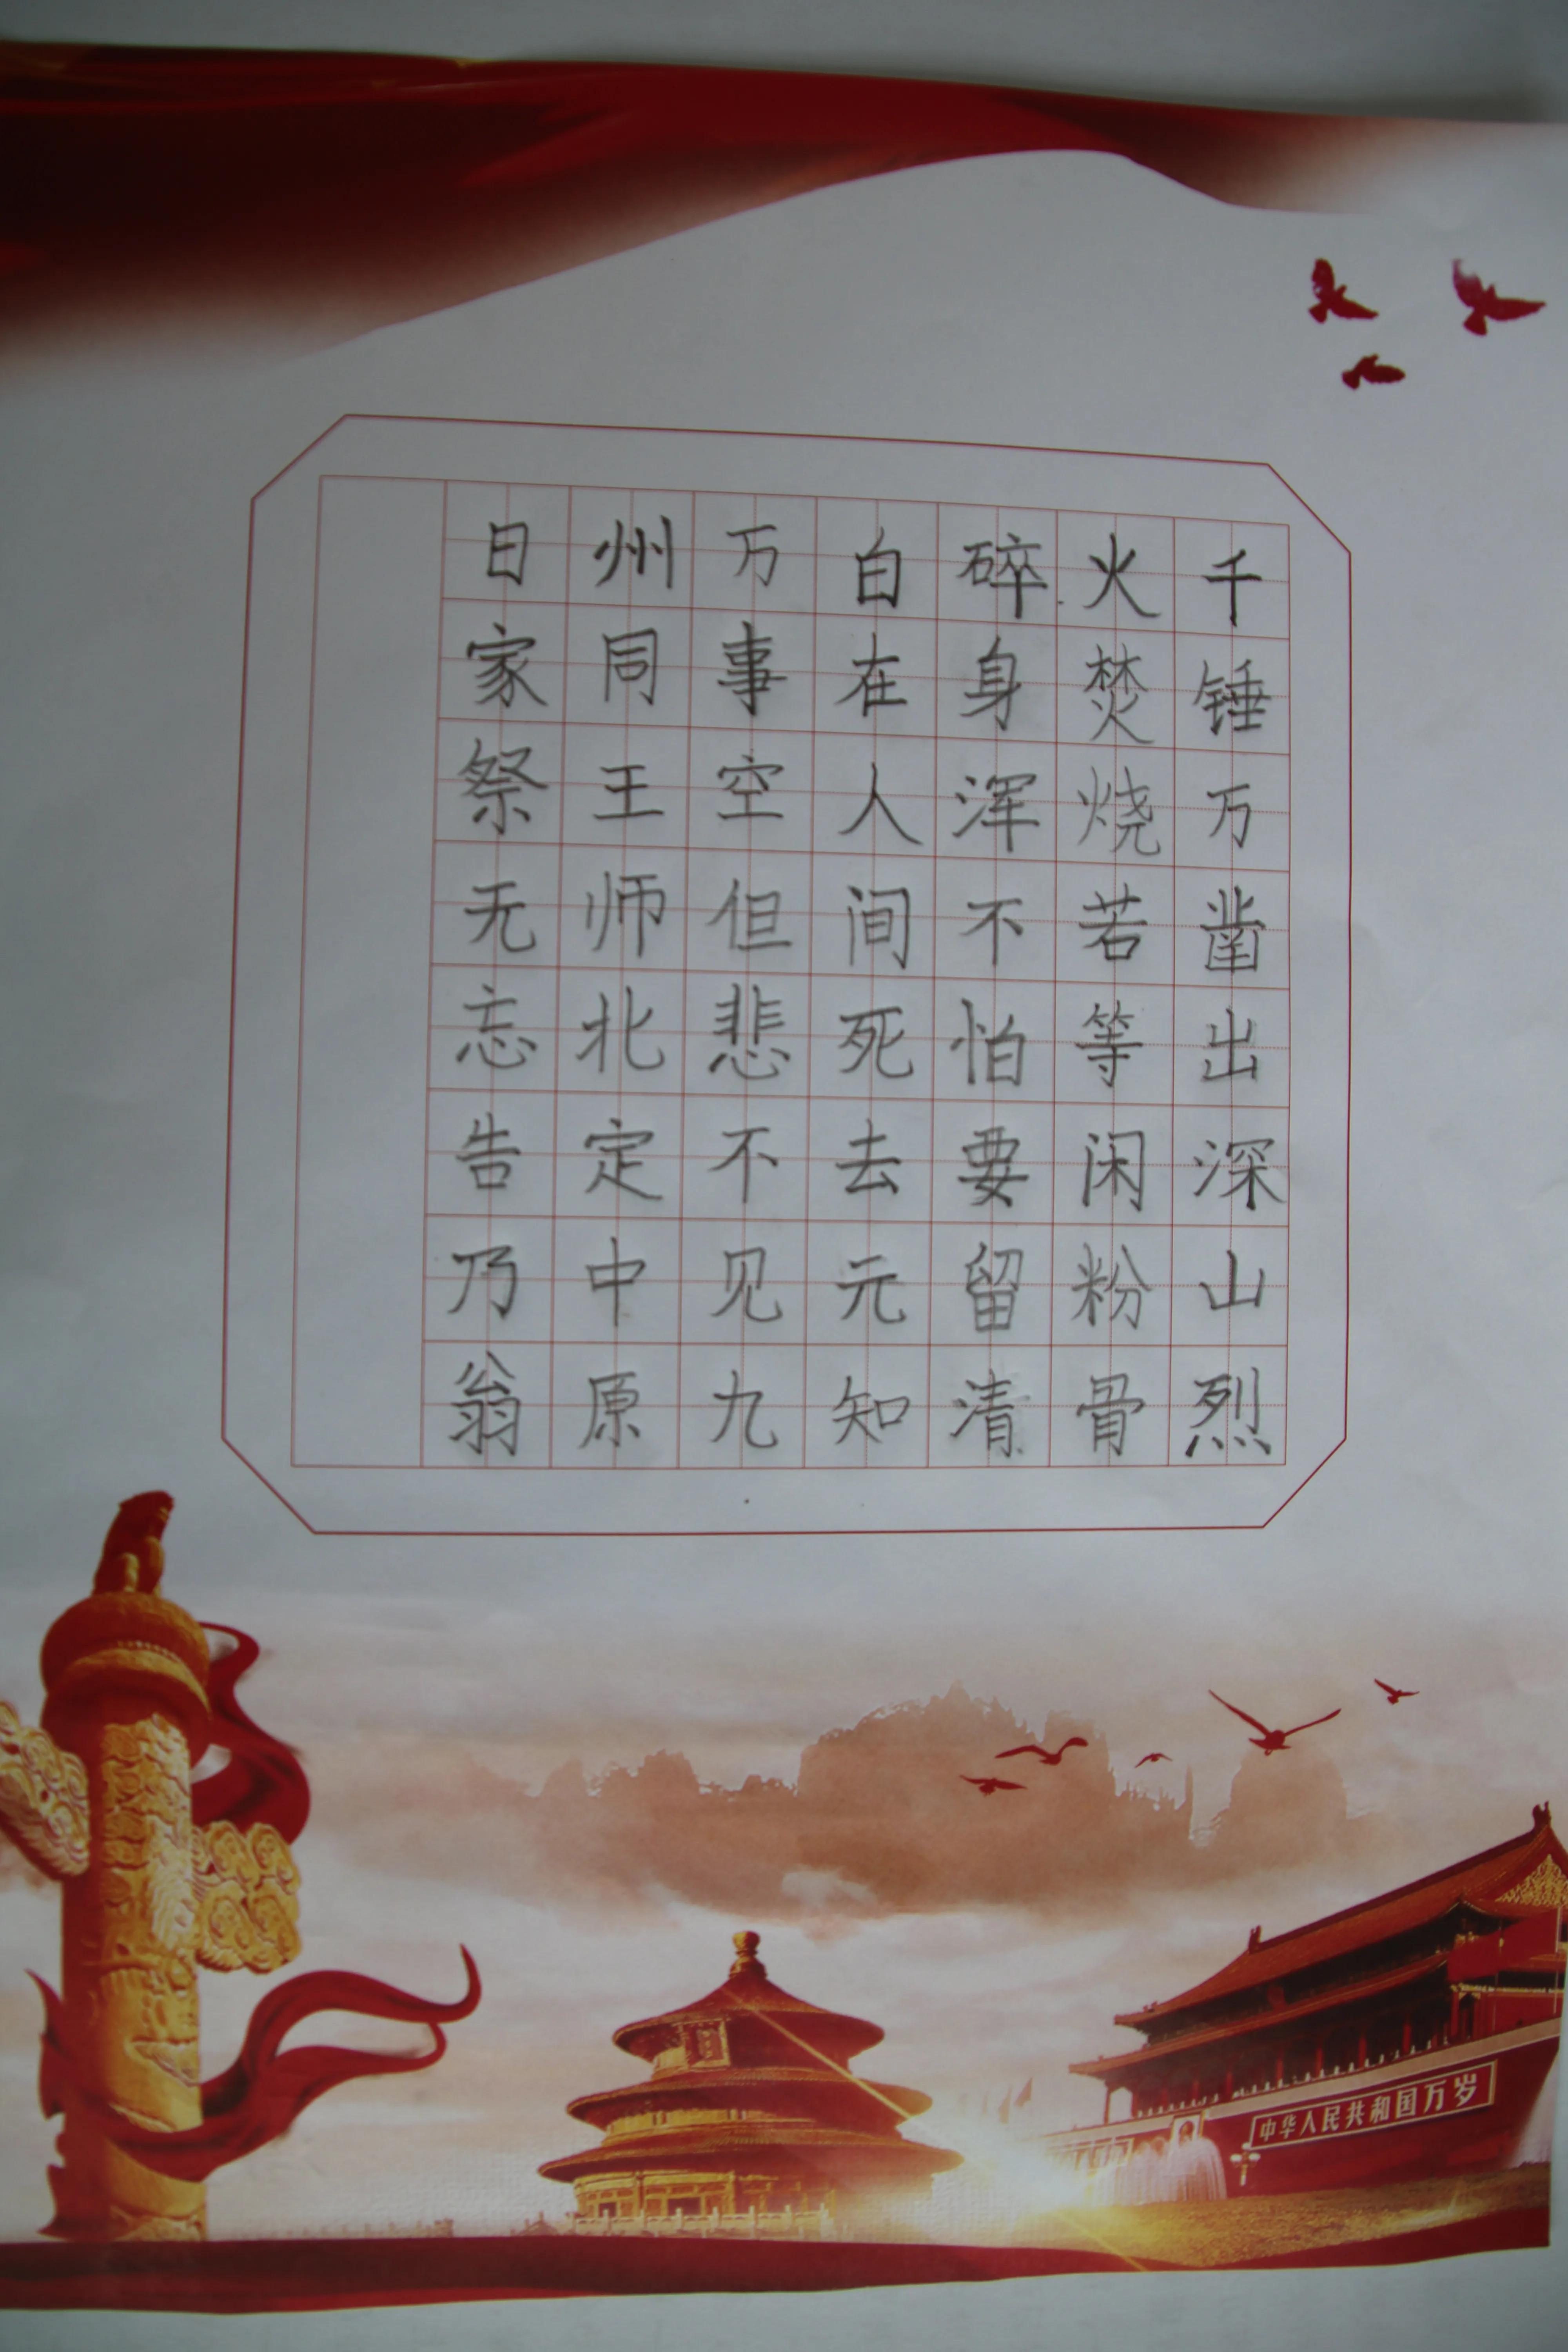 千锤万凿出深山烈
火焚烧若等闲粉骨
碎身浑不怕要留清
白在人间死去元知
万事空但悲不见九
州同王师北定中原
日家祭无忘告乃翁
中华人民共和国万岁